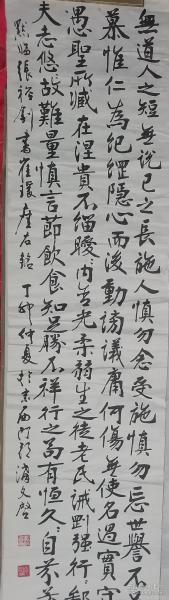 無道人之短無說己之長施人慎勿念受施慎勿忘世譽不
慕惟仁為紀綱隱心而後動謗議庸何傷無使名過實守
愚聖所臧在涅貴不緇曖曖內含光柔弱生之徒老氏誡剛強行行鄙
夫志悠悠故難量慎言節飲食知足勝不祥行之苟有恒久久自芬芳
臨張裕釗書崔瑗座右銘 丁卯仲夏於京西